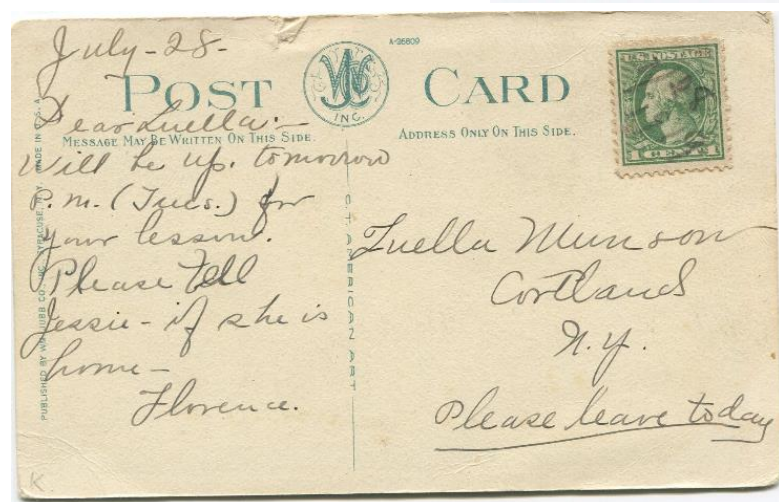 A-26809
POST CARD
INC.
MESSAGE MAY BE WRITTEN ON THIS SIDE.
ADDRESS ONLY ON THIS SIDE.
U.S. POSTAGE
1 CENT 1
July-28-
Dear Luella:-
Will be up. tomorrow
P.m. (Tues.) for
your lesson.
Please tell
Jessie - if she is
home -
Florence.
PUBLISHED BY WM. JUBB CO., INC., SYRACUSE, N.Y. MADE IN U.S.A.
C.T. AMERICAN ART
Luella Munson
Cortland
N.Y.
Please leave today
K